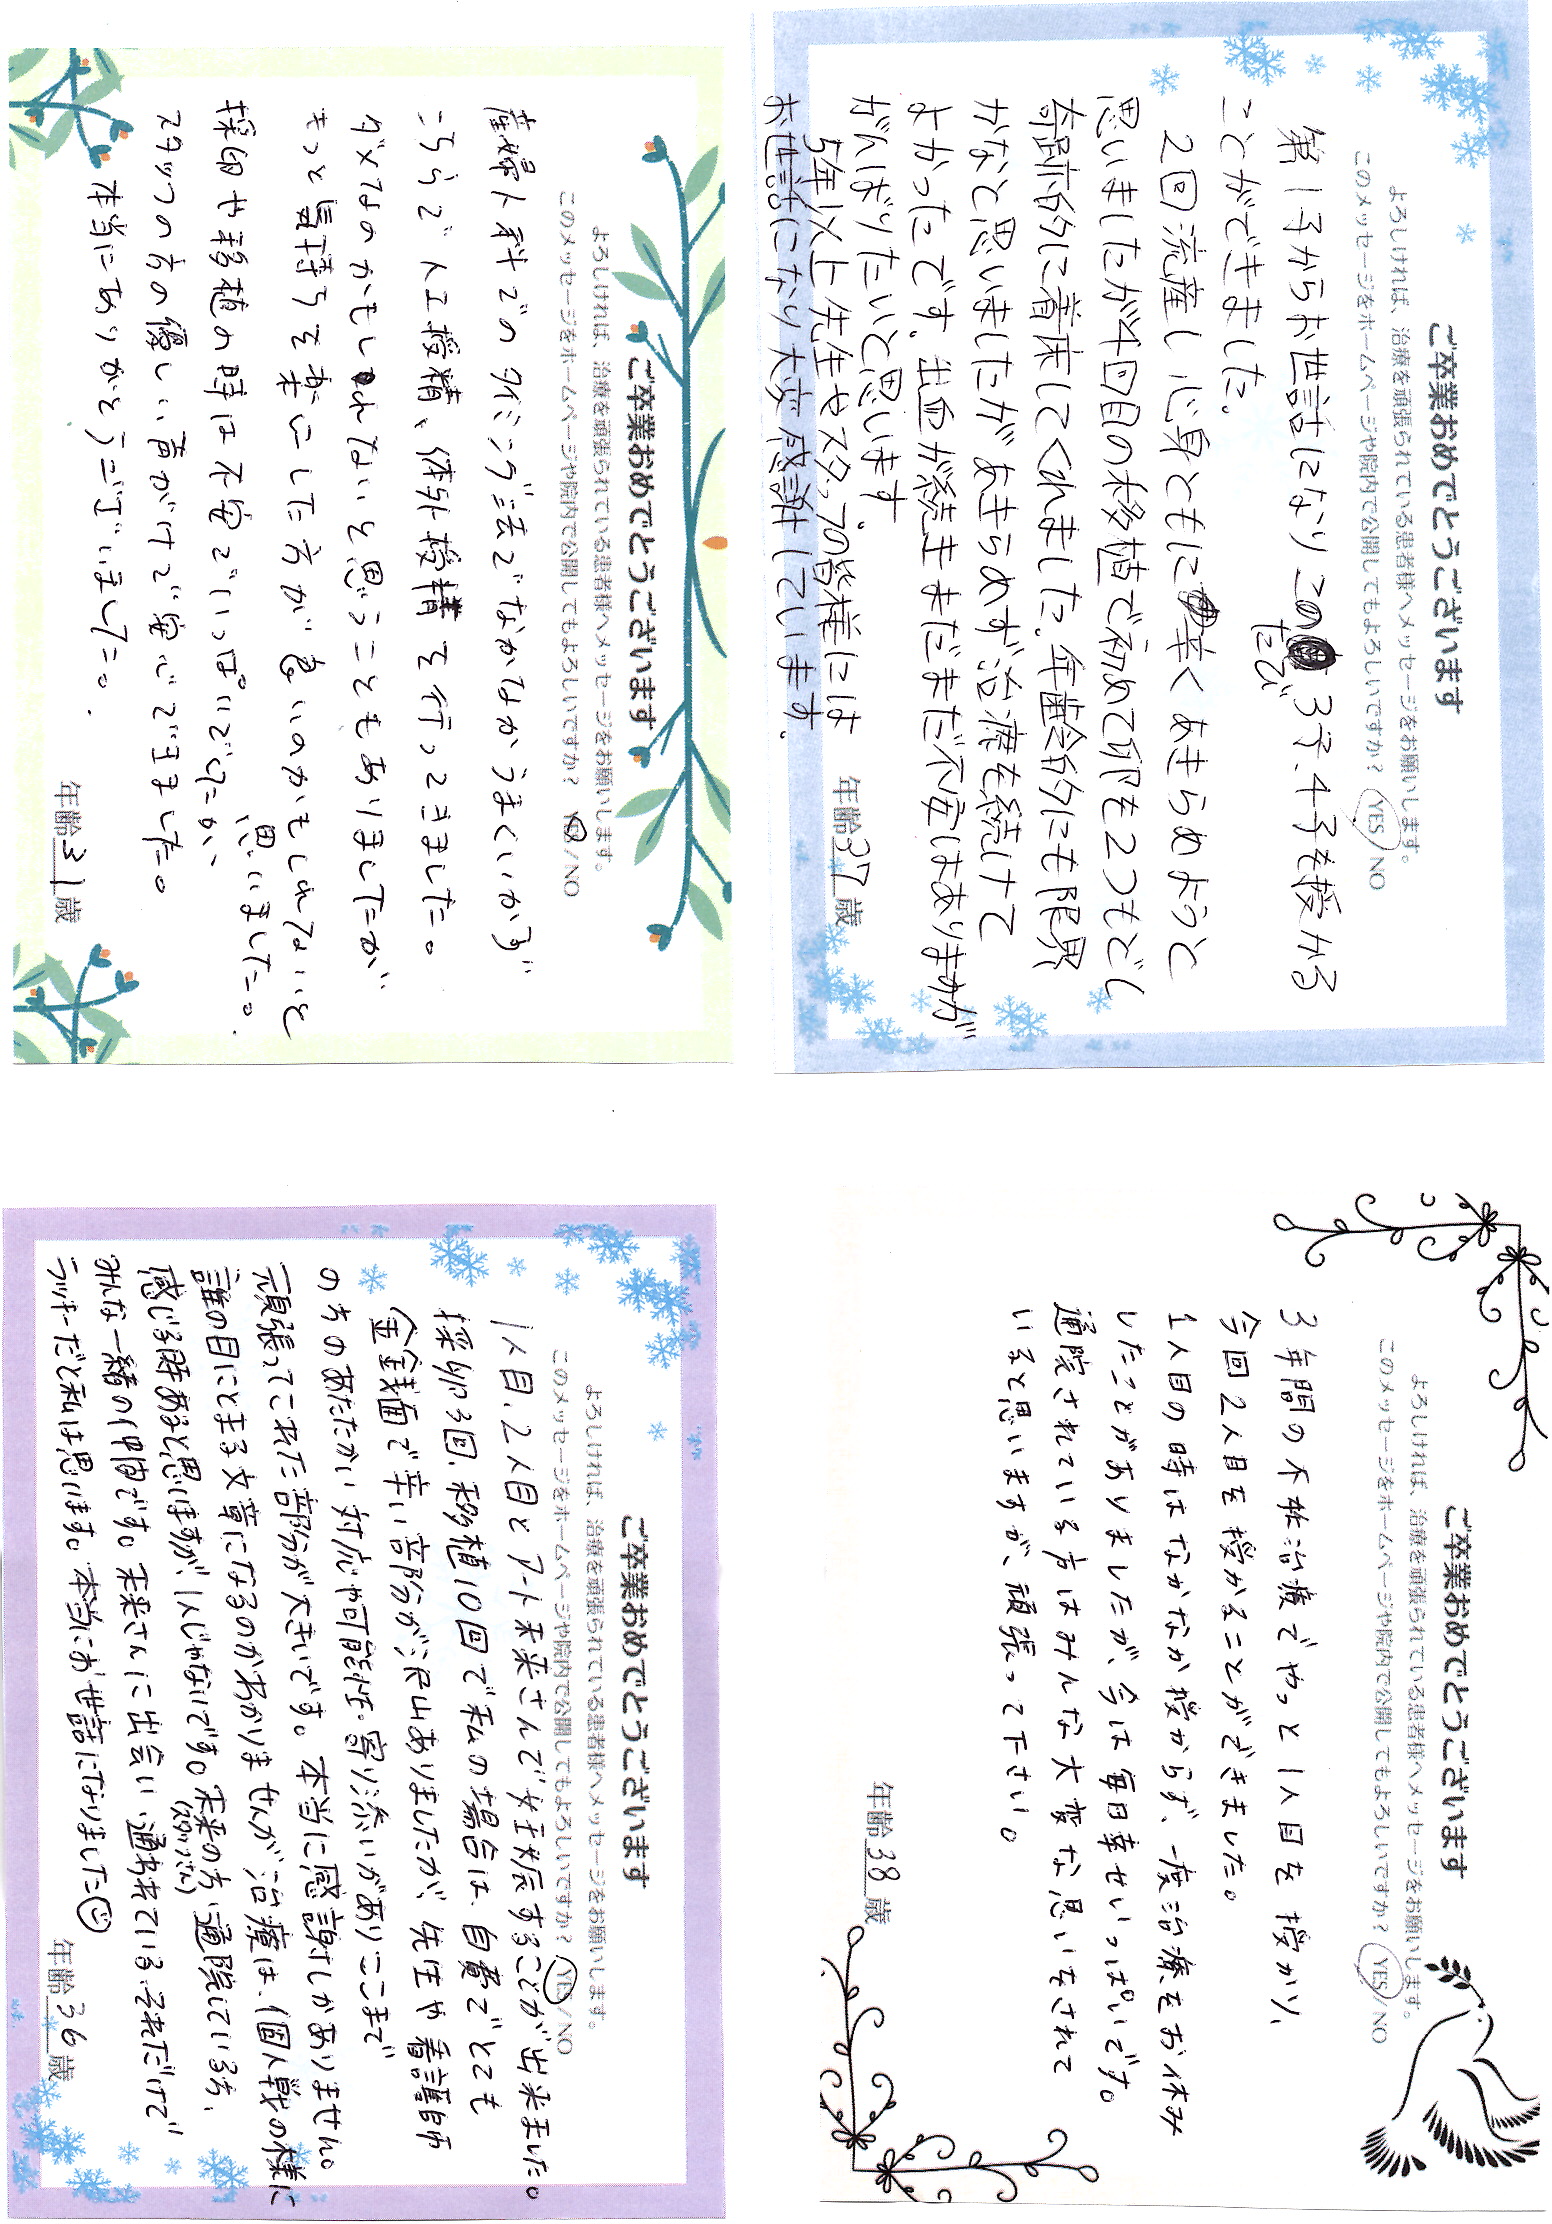 ご卒業おめでとうございます
よろしければ、治療を頑張られている患者様へメッセージをお願いします。
このメッセージをホームページや院内で公開してもよろしいですか? YES/NO
第1子からお世話になりこの
たび
3子、4子を授かる
ことができました。
2回流産し心身ともに辛くあきらめようと
思いましたが4回目の移植で初めて卵を2つもどし
奇跡的に着床してくれました。年齢的にも限界
かなと思いましたがあきらめず治療を続けて
よかったです。出血が続きまだまだ不安はありますが
がんばりたいと思います
5年以上先生やスタッフの皆様には
お世話になり大変感謝しています。
年齢37歳
ご卒業おめでとうございます
よろしければ、治療を頑張られている患者様へメッセージをお願いします。
このメッセージをホームページや院内で公開してもよろしいですか? YES/NO
産婦人科でのタイミング法でなかなかうまくいかず
こちらで人工授精、体外授精を行ってきました。
ダメなのかもしれないと思うこともありましたが
きっと気持ちを楽にした方が良いのかもしれないと
思いました。
採卵や移植の時は不安でいっぱいでしたが、
スタッフの方の優しい声がけで安心できました。
本当にありがとうございました。
年齢31歳
ご卒業おめでとうございます
よろしければ、治療を頑張られている患者様へメッセージをお願いします。
このメッセージをホームページや院内で公開してもよろしいですか? YES/NO
3年間の不妊治療でやっと1人目を授かり、
今回2人目を授かることができました。
1人目の時はなかなか授からず、一度治療をお休み
したことがありましたが、今は毎日幸せいっぱいです。
通院されている方はみんな大変な思いをされて
いると思いますが、頑張って下さい。
年齢38歳
ご卒業おめでとうございます
よろしければ、治療を頑張られている患者様へメッセージをお願いします。
このメッセージをホームページや院内で公開してもよろしいですか? YES/NO
1人目、2人目とアート未来さんで妊娠することが出来ました。
採卵3回、移植10回で私の場合は、自費でとても
金銭面で辛い部分が沢山ありましたが、先生や看護師
の方のあたたかい対応や可能性・寄り添いがありここまで
頑張ってこれた部分が大きいです。本当に感謝しかありません。
誰の目にとまる文章になるのかわかりませんが、治療は、個人戦の様に
感じる時あると思いますが、1人じゃないです。未来の方、通院している方、
(スタッフさん)
みんな一緒の仲間です。未来さんに出会い、通われている、それだけで
ラッキーだと私は思います。本当にお世話になりました☺
年齢36歳